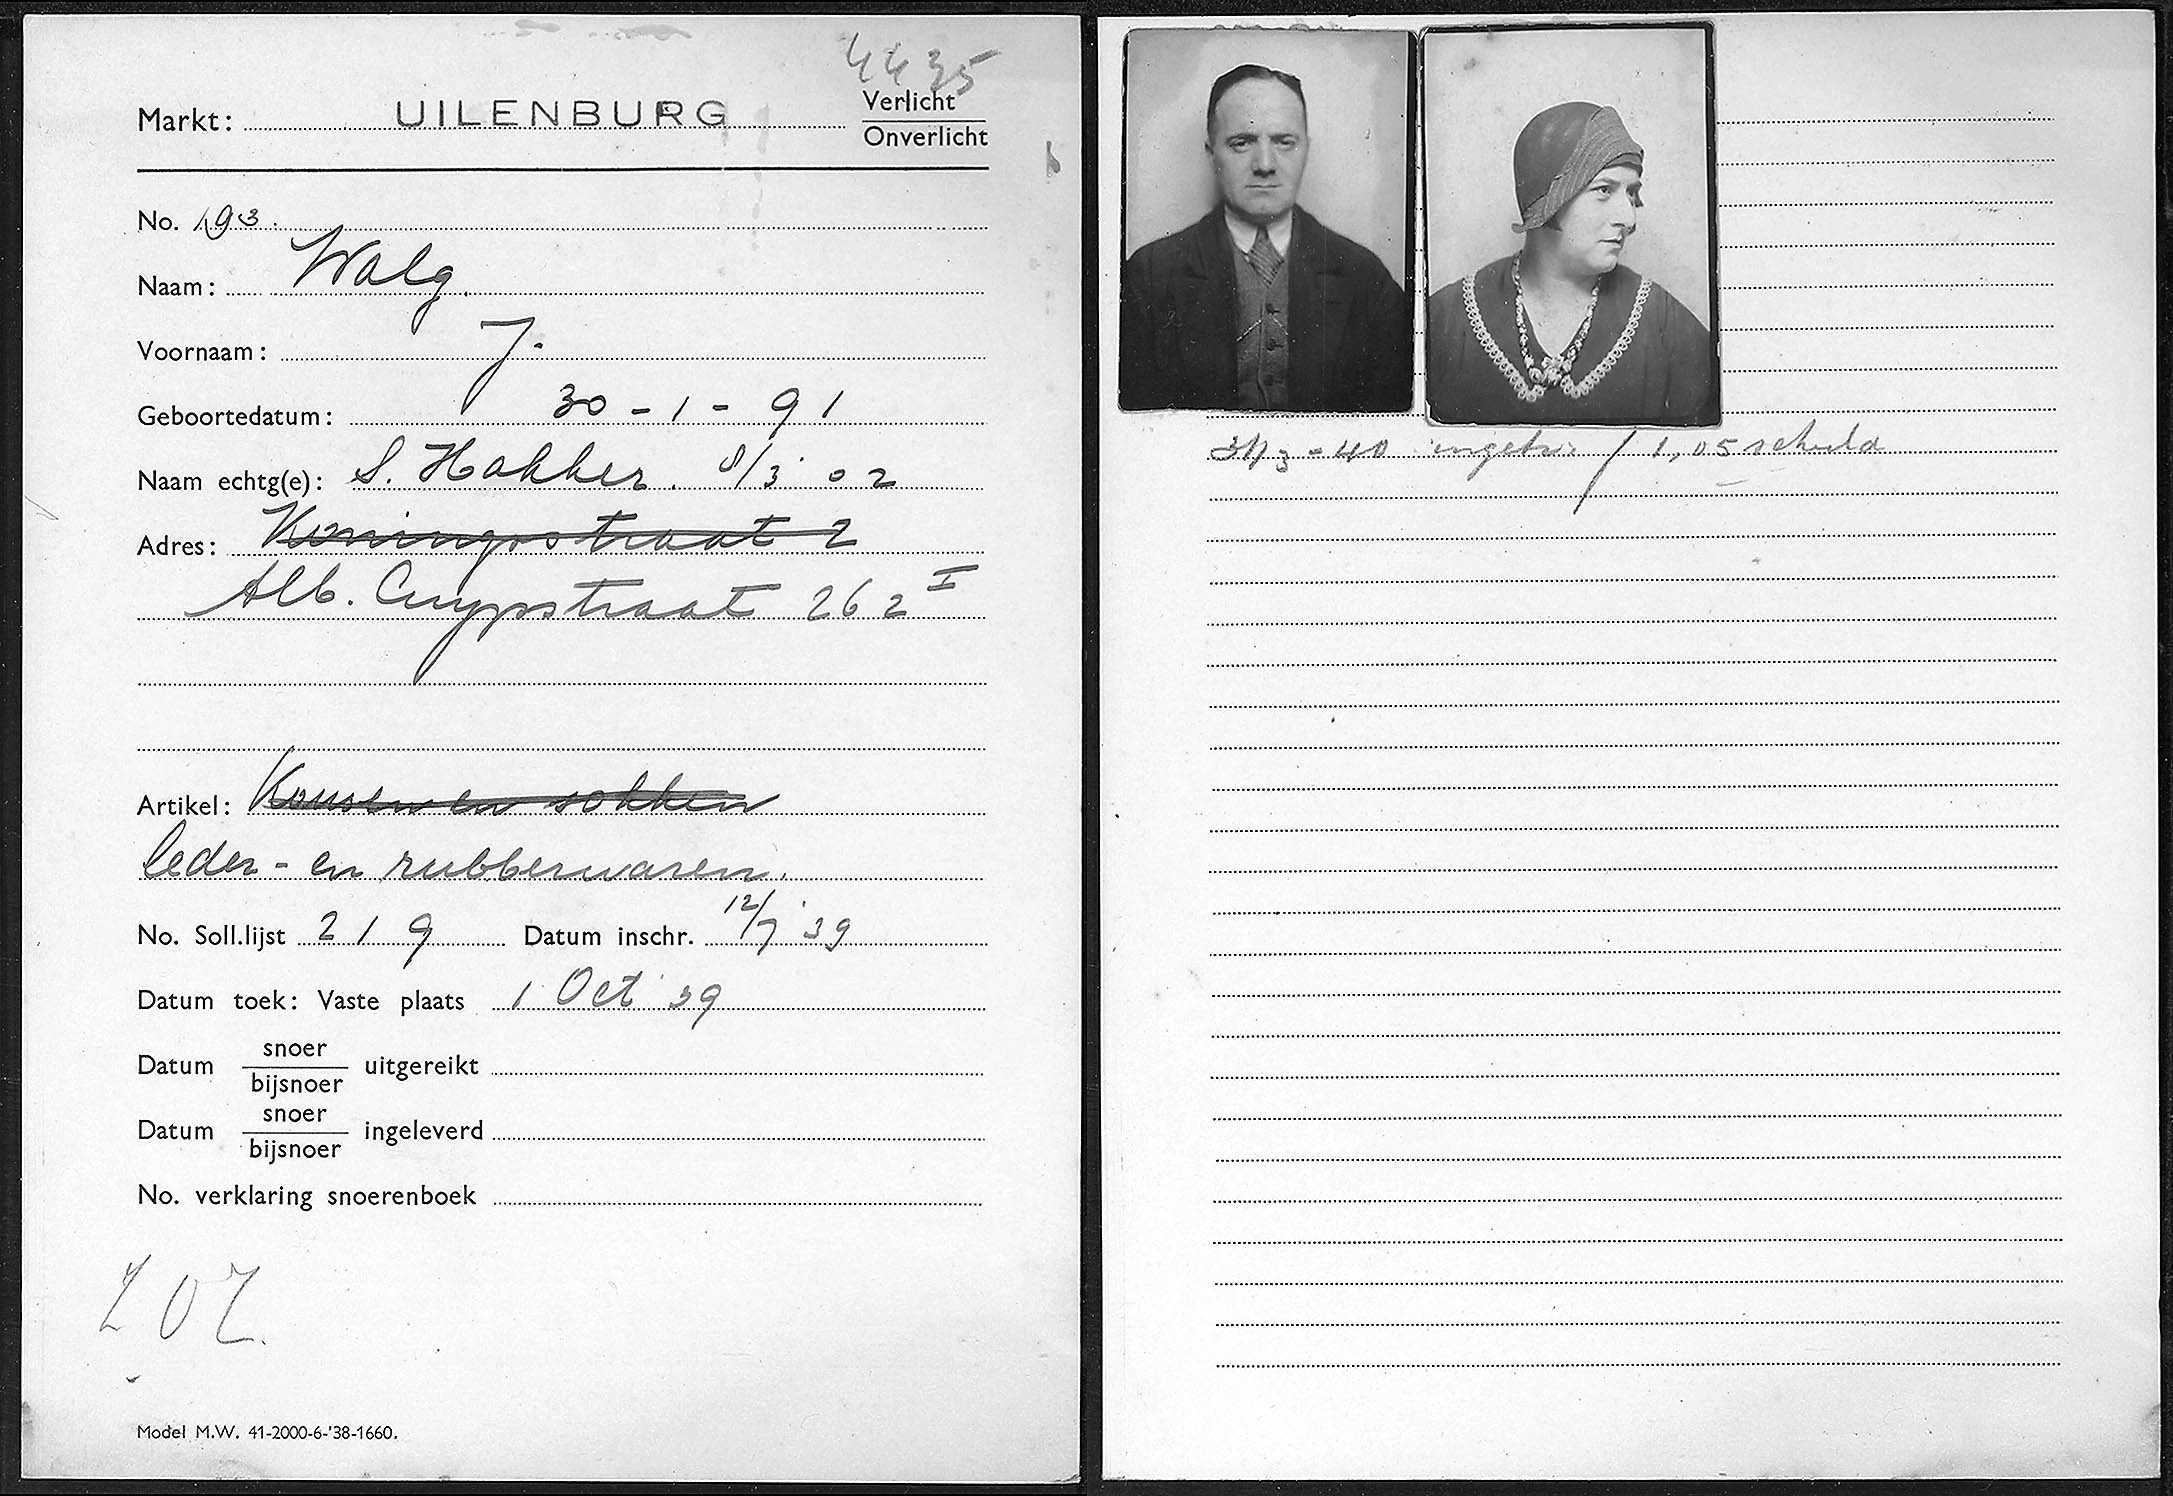 4435
Markt: UILENBURG Verlicht
Onverlicht
No. 193.
Naam: Walg.
Voornaam: J.
Geboortedatum: 30-1-91
Naam echtg(e): S. Hakker. 8/3 02
Adres: Koningsstraat 2
Alb. Cuypstraat 262 I
Artikel: Kousen en sokken
leder- en rubberwaren.
No. Soll.lijst 219 Datum inschr. 12/7 '39
Datum toek: Vaste plaats 1 Oct '39
Datum snoer/bijsnoer uitgereikt
Datum snoer/bijsnoer ingeleverd
No. verklaring snoerenboek
Model M.W. 41-2000-6-'38-1660.
3-40 f 1,05 schuld